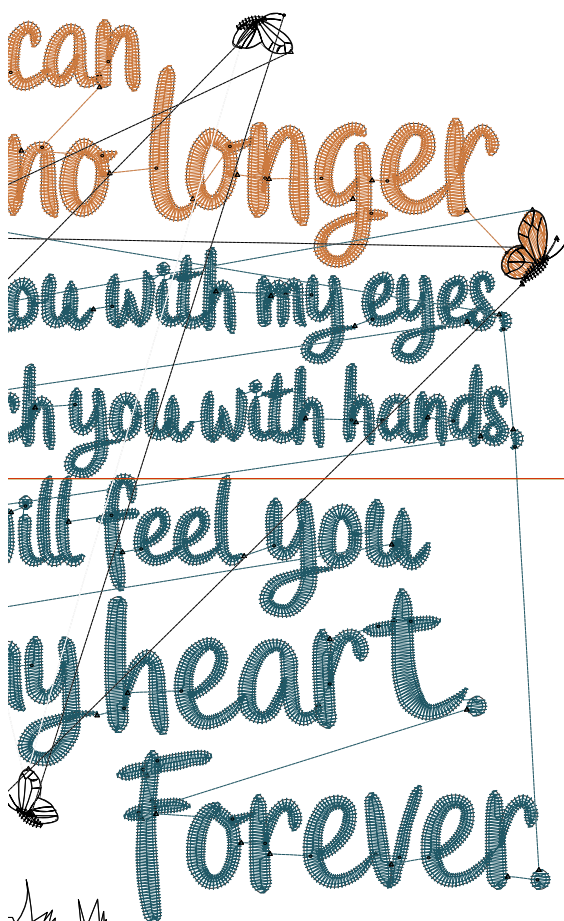 can
no longer
ou with my eyes,
h you with hands,
ill feel you
y heart.
Forever.